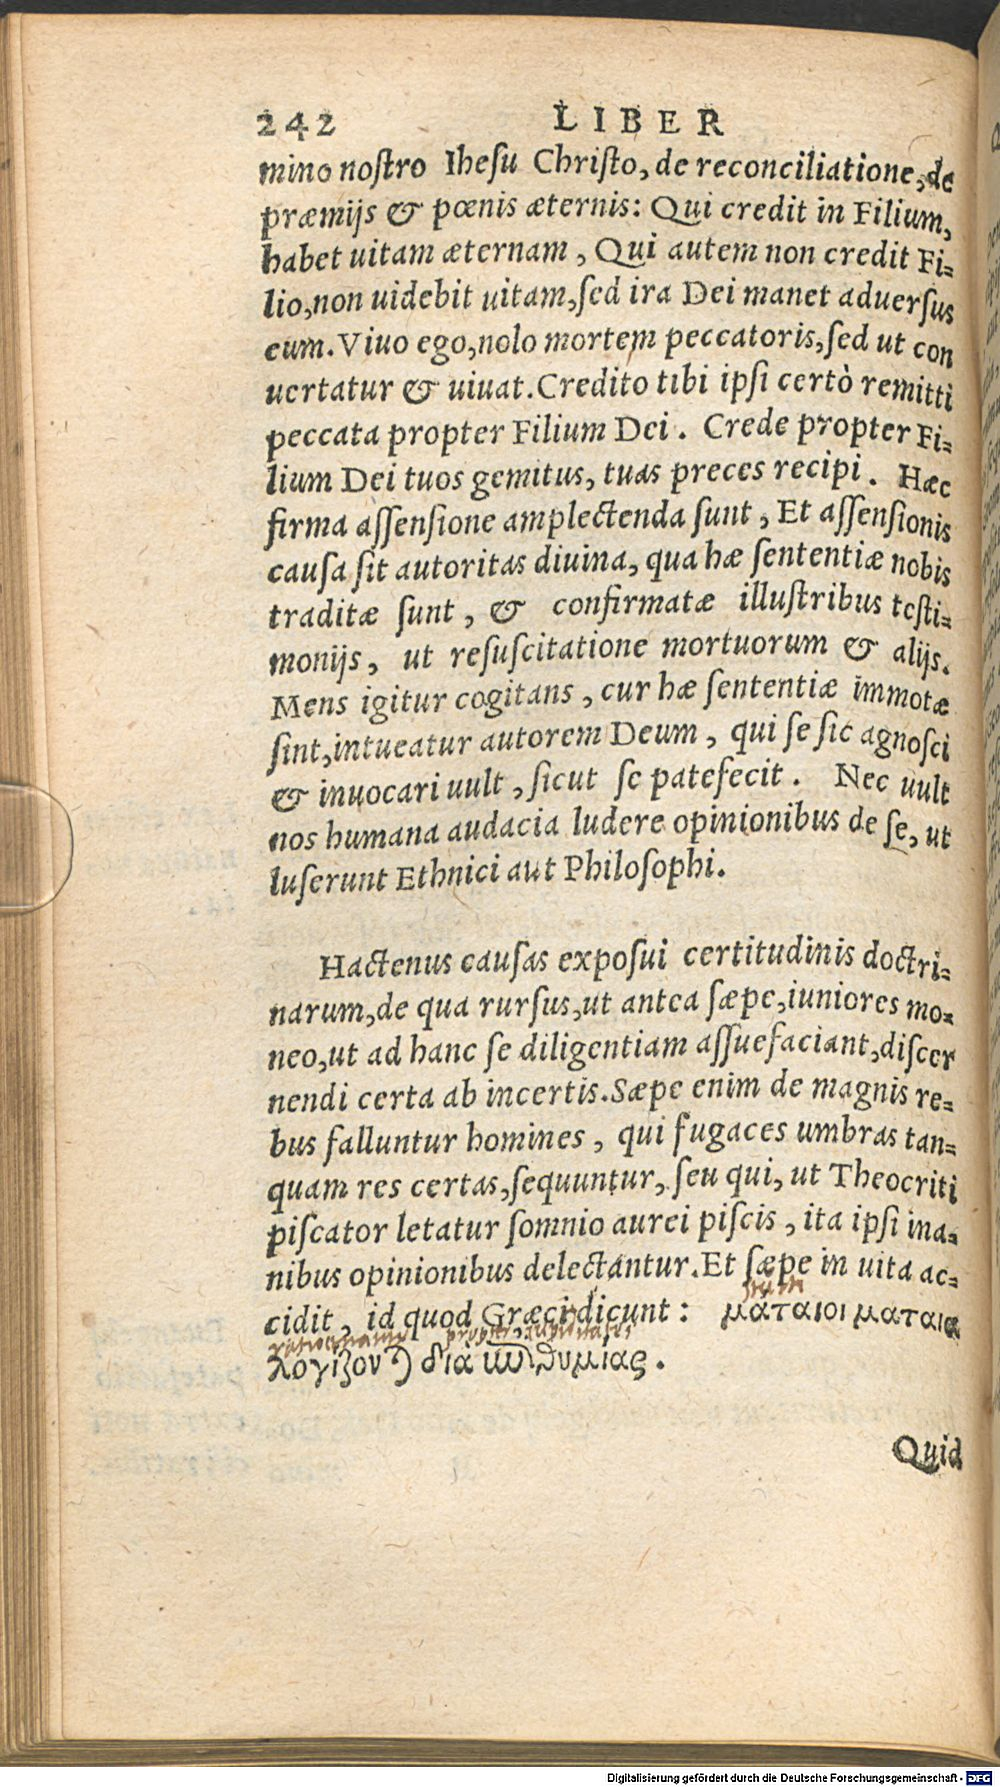 242 LIBER
mino nostro Ihesu Christo, de reconciliatione, de
præmijs & pœnis æternis: Qui credit in Filium,
habet uitam æternam, Qui autem non credit Fi=
lio, non uidebit uitam, sed ira Dei manet aduersus
eum. Viuo ego, nolo mortem peccatoris, sed ut con
uertatur & uiuat. Credito tibi ipsi certò remitti
peccata propter Filium Dei. Crede propter Fi=
lium Dei tuos gemitus, tuas preces recipi. Hæc
firma assensione amplectenda sunt, Et assensionis
causa sit autoritas diuina, qua hæ sententiæ nobis
traditæ sunt, & confirmatæ illustribus testi=
monijs, ut resuscitatione mortuorum & alijs.
Mens igitur cogitans, cur hæ sententiæ immotæ
sint, intueatur autorem Deum, qui se sic agnosci
& inuocari uult, sicut se patefecit. Nec uult
nos humana audacia ludere opinionibus de se, ut
luserunt Ethnici aut Philosophi.
Hactenus causas exposui certitudinis doctri=
narum, de qua rursus, ut antea sæpe, iuniores mo=
neo, ut ad hanc se diligentiam assuefaciant, discer
nendi certa ab incertis. Sæpe enim de magnis re=
bus falluntur homines, qui fugaces umbras tan=
quam res certas, sequuntur, seu qui, ut Theocriti
piscator letatur somnio aurei piscis, ita ipsi ina=
nibus opinionibus delectantur. Et sæpe in uita ac=
cidit, id quod Græci dicunt: μάταιοι μάταια
λογίζονται διὰ ἐπιθυμίας.
Quid
Digitalisierung gefördert durch die Deutsche Forschungsgemeinschaft - DFG